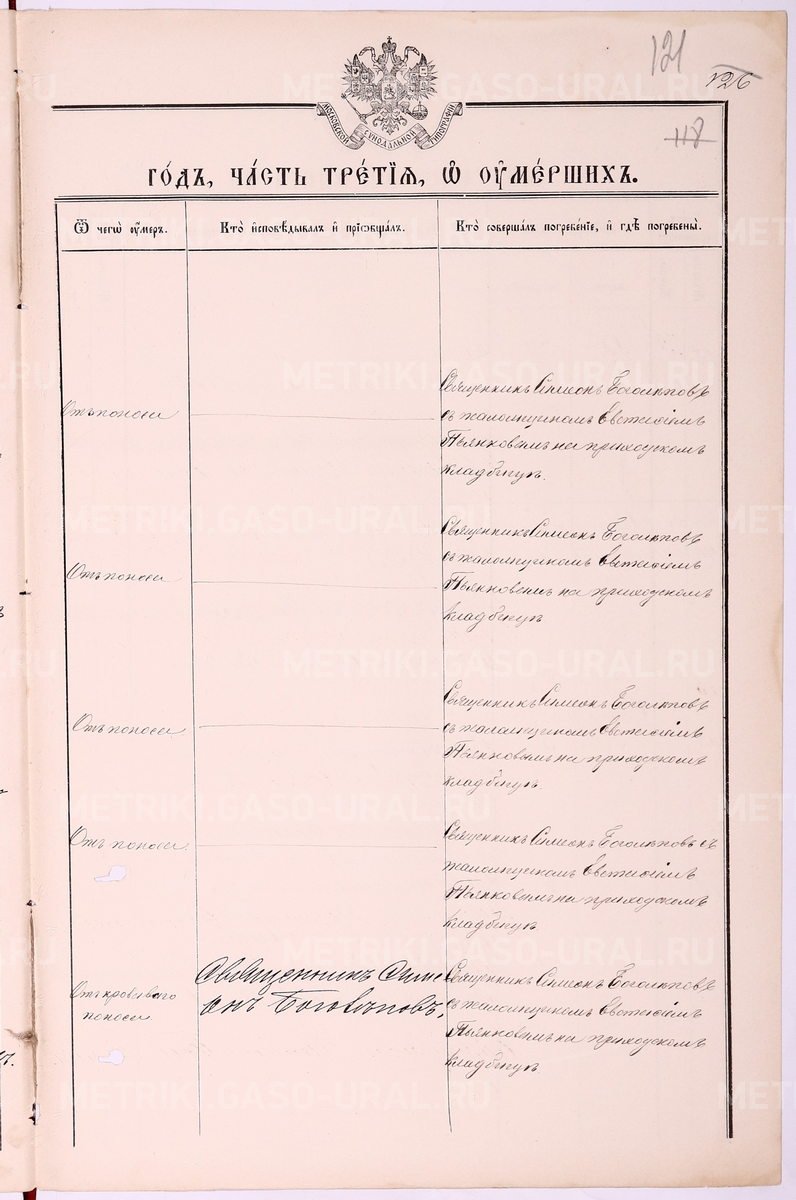 121
126
118
МОСКОВСКОЙ СУНОДАЛЬНОЙ ТИПОГРАФIИ
ГО́ДЪ, ЧА́СТЬ ТРЕ́ТIѦ, Ѡ҆ ОУ҆МЕ́РШИХЪ.
Ѿ чегѡ̀ оу҆́меръ.
Кто̀ и҆сповѣ́дывалъ и҆ прїѻбща́лъ.
Кто̀ соверша́лъ погребе́нїе, и҆ гдѣ̀ погребены̀.
Отъ поноса
Священникъ Симеонъ Боголѣповъ
съ псаломщикомъ Евтихiемъ
Пьянковымъ на приходскомъ
кладбищѣ.
Отъ поноса
Священникъ Симеонъ Боголѣповъ
съ псаломщикомъ Евтихiемъ
Пьянковымъ на приходскомъ
кладбищѣ
Отъ поноса
Священникъ Симеонъ Боголѣповъ
съ псаломщикомъ Евтихiемъ
Пьянковымъ на приходскомъ
кладбищѣ
Отъ поноса
Священникъ Симеонъ Боголѣповъ съ
псаломщикомъ Евтихiемъ
Пьянковымъ на приходскомъ
кладбищѣ
Отъ кроваваго
поноса
Священникъ Симе
онъ Боголѣповъ.
Священникъ Симеонъ Боголѣповъ
съ псаломщикомъ Евтихiемъ
Пьянковымъ на приходскомъ
кладбищѣ
METRIKI.GASO-URAL.RU